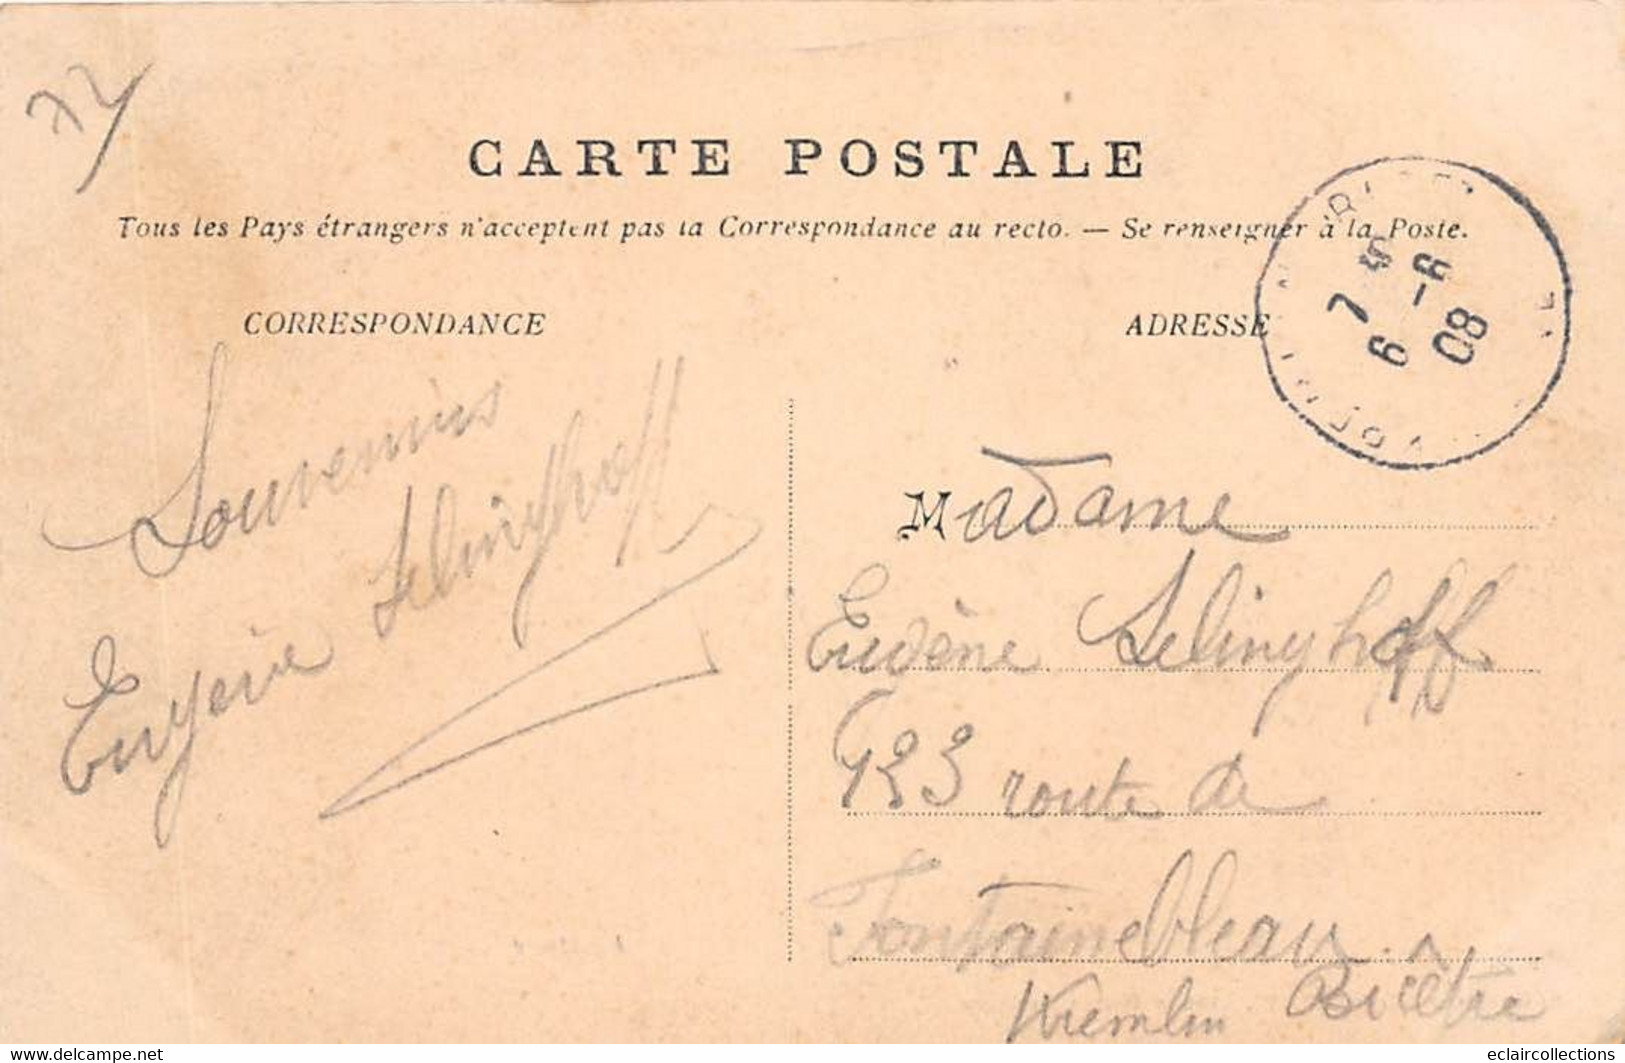 77
CARTE POSTALE
Tous les Pays étrangers n'acceptent pas la Correspondance au recto. — Se renseigner à la Poste.
CORRESPONDANCE
ADRESSE
7 45
6 -6
08
Souvenirs
Eugénie Selinghoff
Madame
Eugène Selinghoff
123 route de
Fontainebleau
Kremlin Bicêtre
eclaircollections